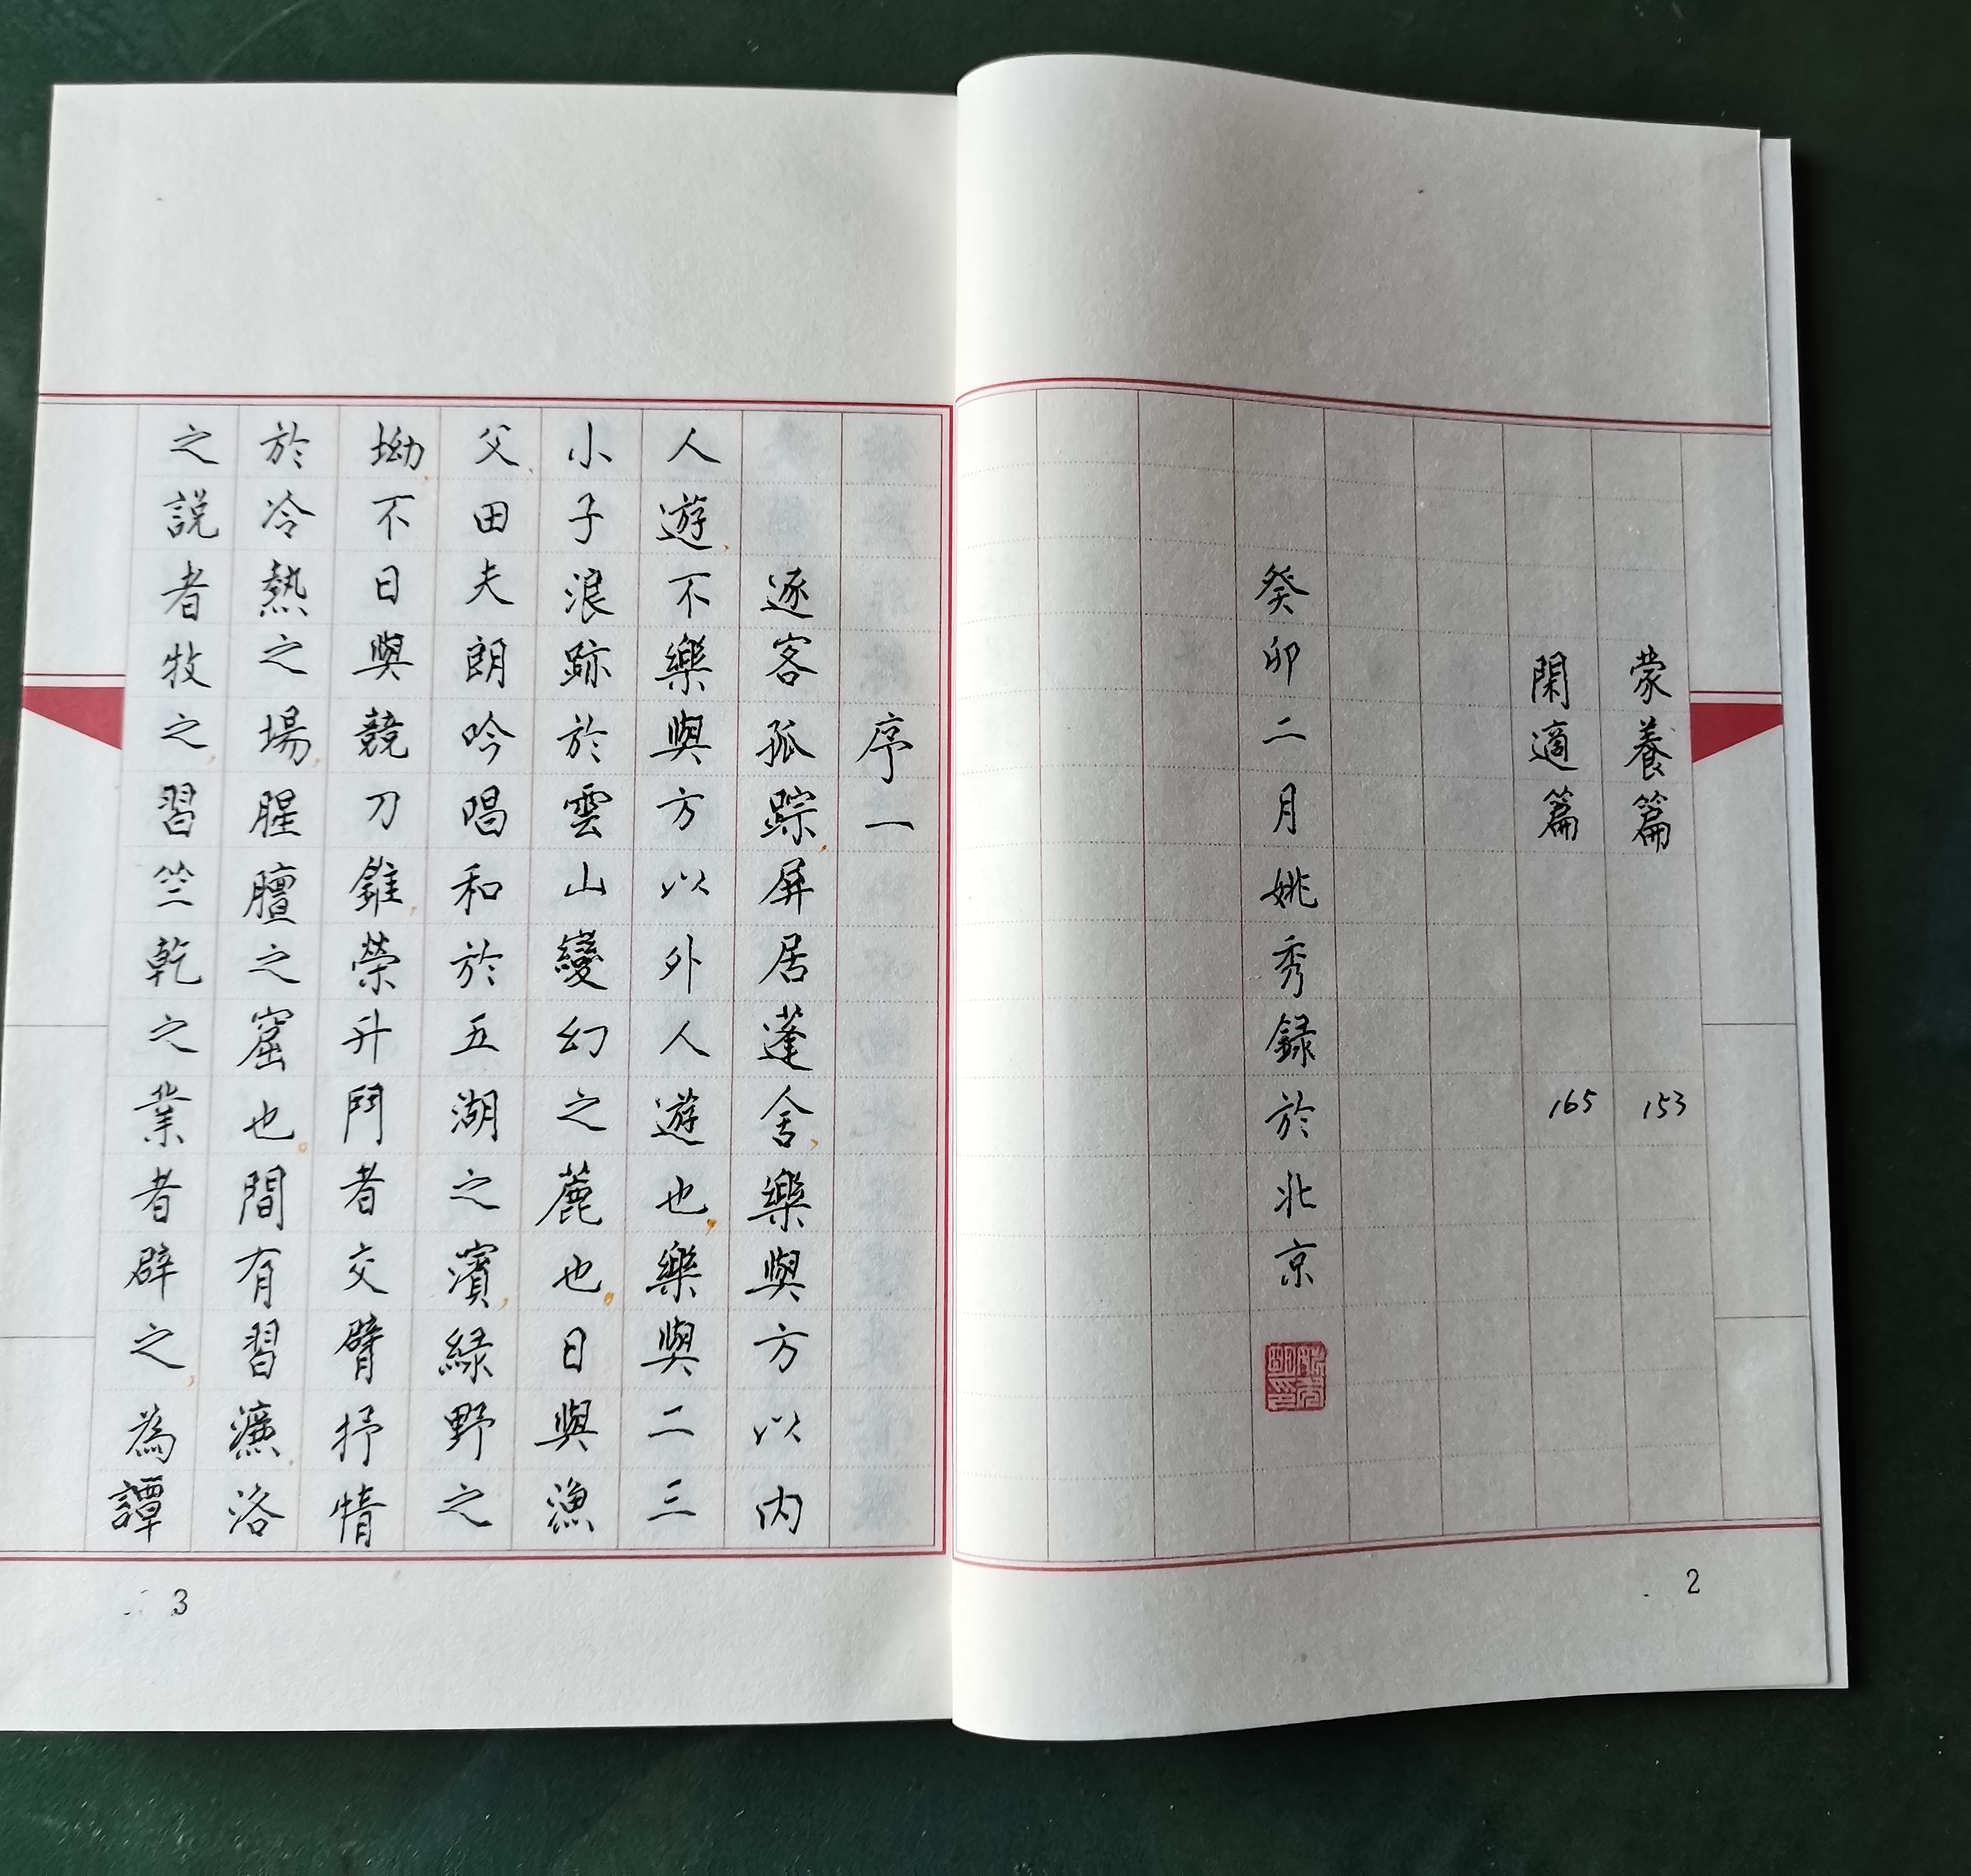 蒙養篇 153
閑適篇 165
癸卯二月姚秀録於北京
2
序一
逐客孤踪,屏居蓬舍,樂與方以内
人遊,不樂與方以外人遊也,樂與二三
小子浪跡於雲山變幻之麓也。日與漁
父、田夫朗吟唱和於五湖之濱,緑野之
坳,不日與競刀錐,榮升鬥者交臂抒情
於冷熱之場,腥膻之窟也。間有習濂洛
之説者牧之,習竺乾之業者辟之,為譚
3